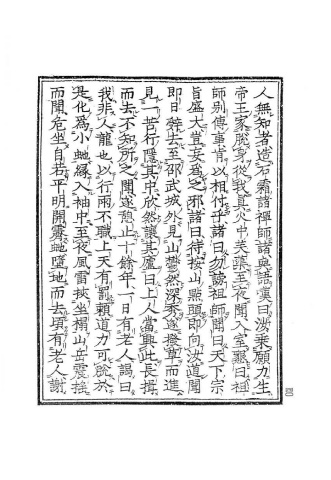 人無知者造石霜諸禪師諸與語嘆曰汝乘願力生
帝王家脫身從我真火中芙蕖至夜聞入室懇曰祖
師別傳事肯以相付乎諸曰勿謗祖師聞曰天下宗
旨盛大豈妄爲之邪諸曰待按山點頭即向汝道聞
即日辤去至邵武城外見山鬱然深秀遂撥草而進
見一苦行隱其中欣然讓其廬曰上人當興此長揖
而去不知所之聞遂憩止十餘年一日有老人謁曰
我非人龍也以行雨不職上天有罰賴道力可脫於
是化爲小虵緣入袖中至夜風雷挾坐榻山岳震搖
而聞危坐自若平明開霽虵墮地而去頃有老人謝